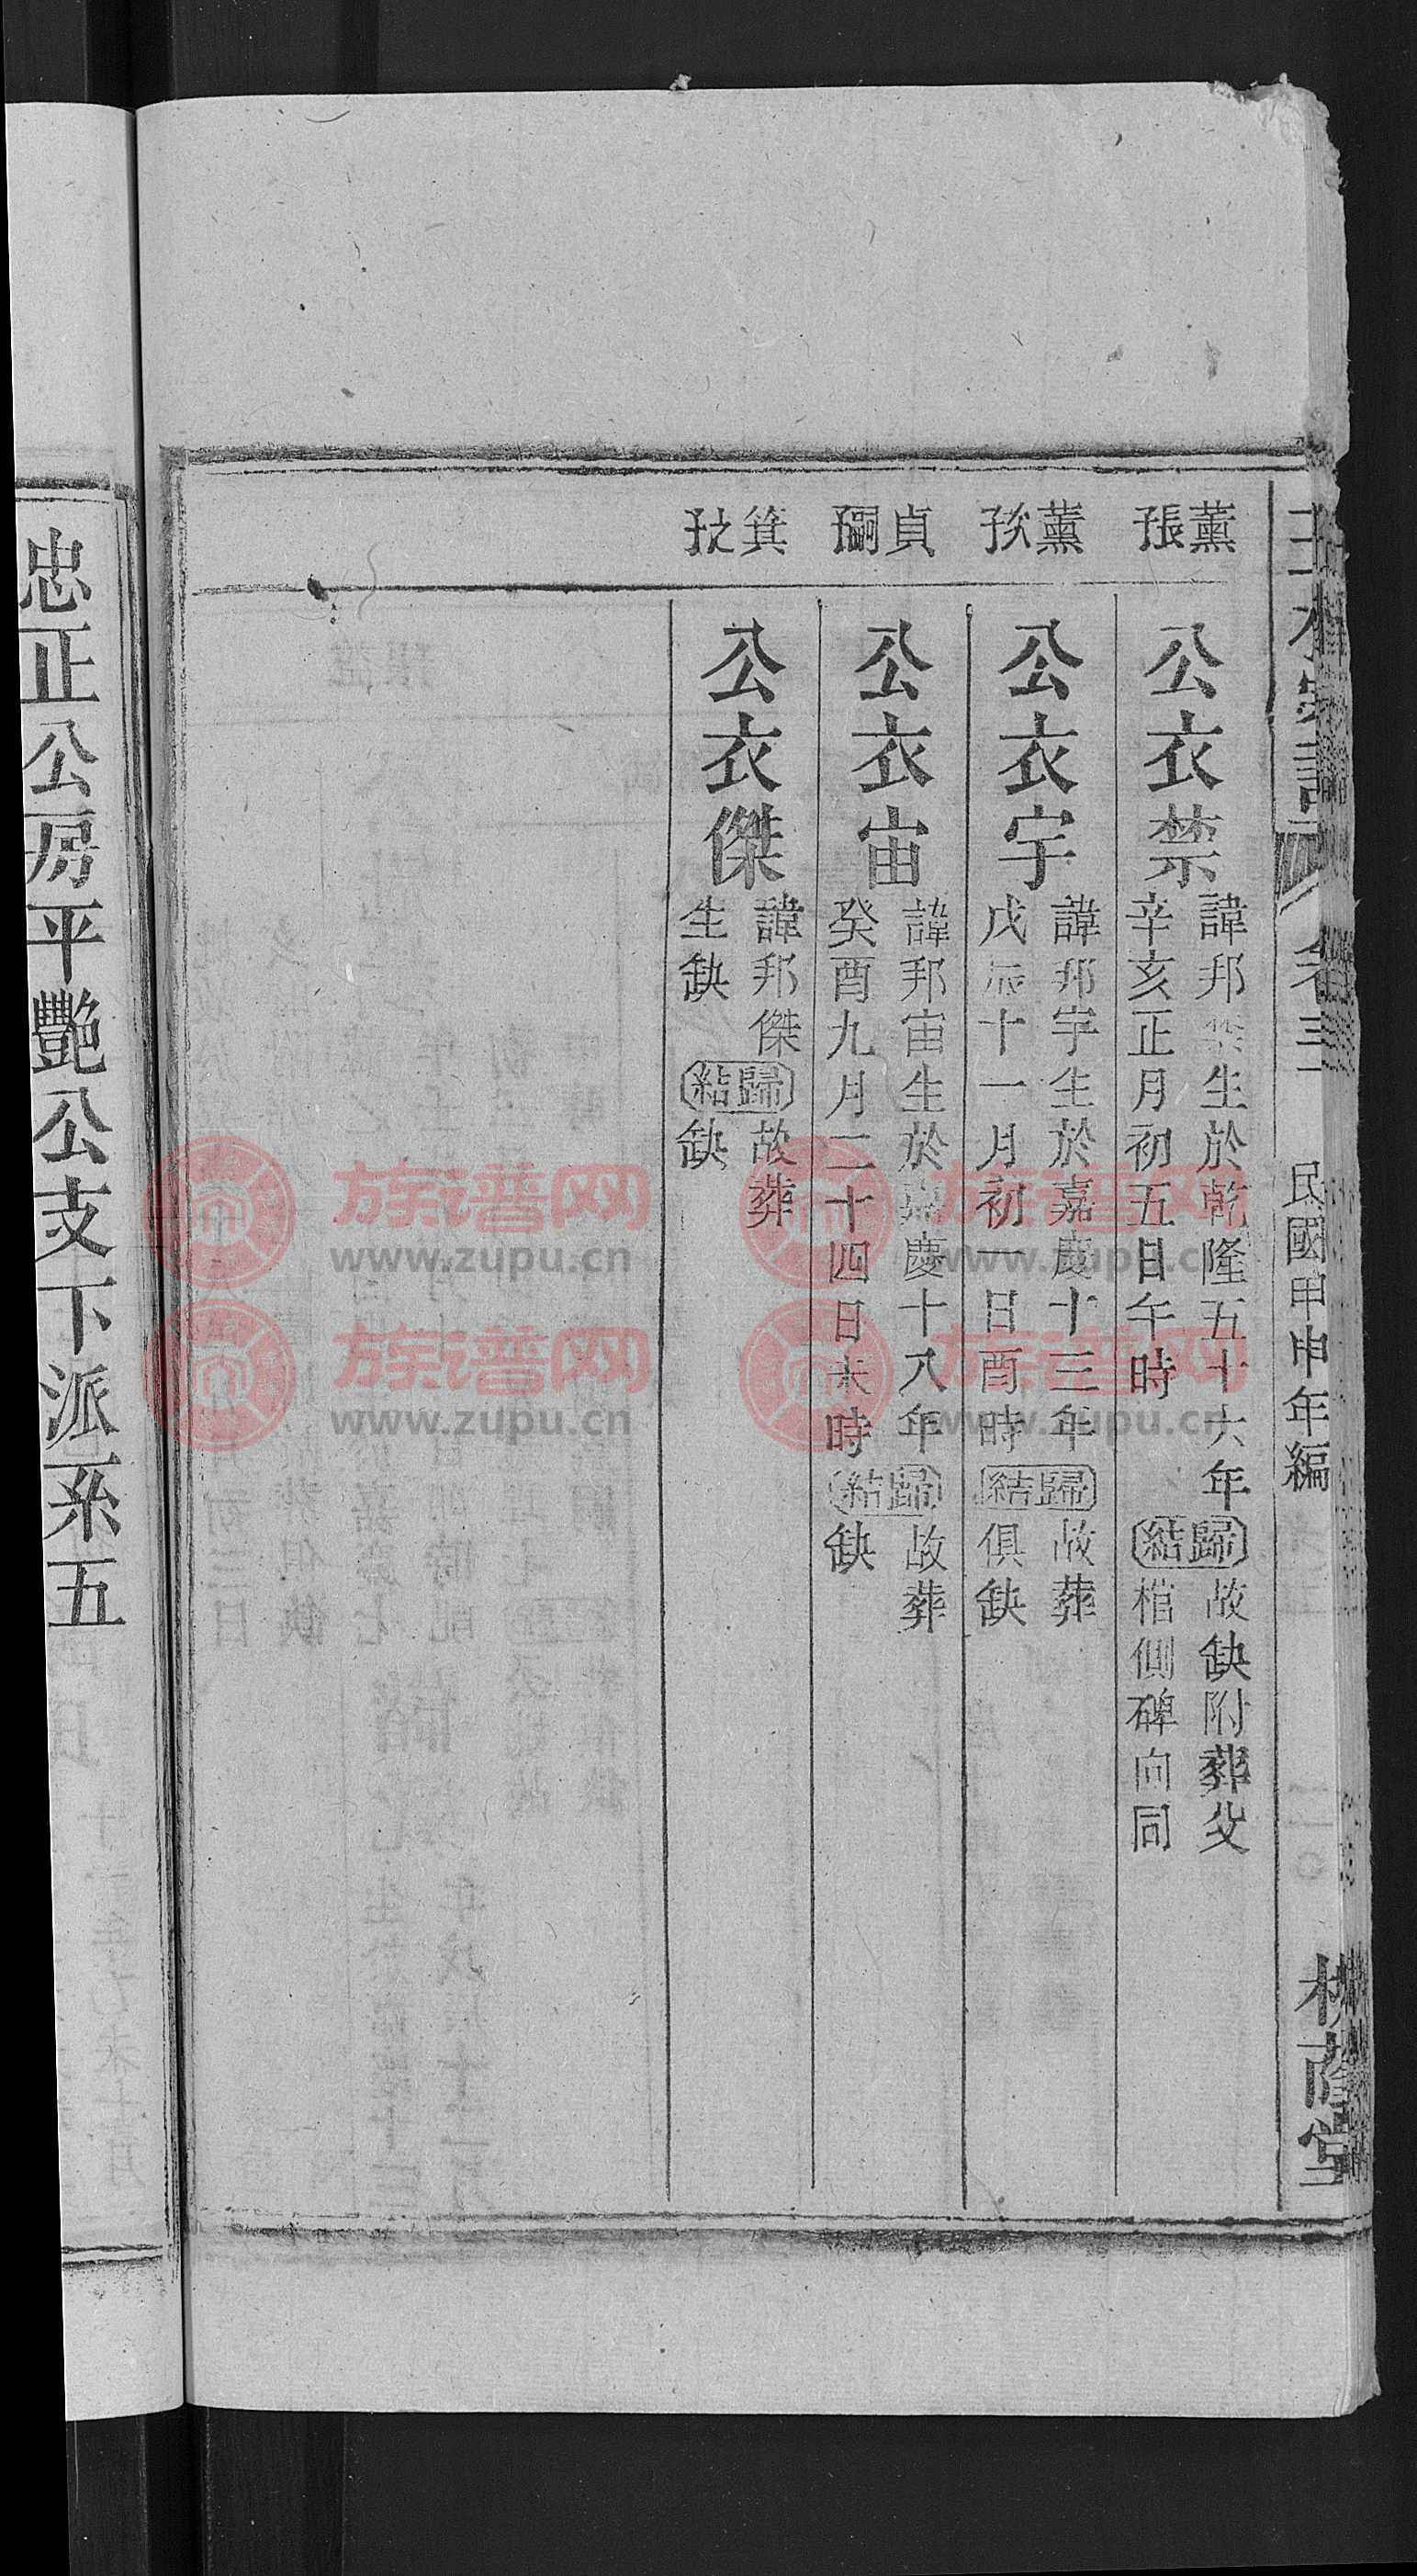 卷三 民國甲申年編 二〇 蔭堂
薰張
公衣禁
諱邦禁生於乾隆五十六年
辛亥正月初五日午時
歸結
故缺附葬父
棺側碑向同
薰
公衣宇
諱邦宇生於嘉慶十三年
戊辰十一月初一日酉時
歸結
故葬
俱缺
貞嗣
公衣宙
諱邦宙生於嘉慶十八年
癸酉九月二十四日未時
歸結
故葬
缺
箕
公衣傑
諱邦傑
生缺
歸結
故葬
缺
忠正公房平艷公支下派系五
族谱网
www.zupu.cn
族谱网
www.zupu.cn
族谱网
www.zupu.cn
族谱网
www.zupu.cn